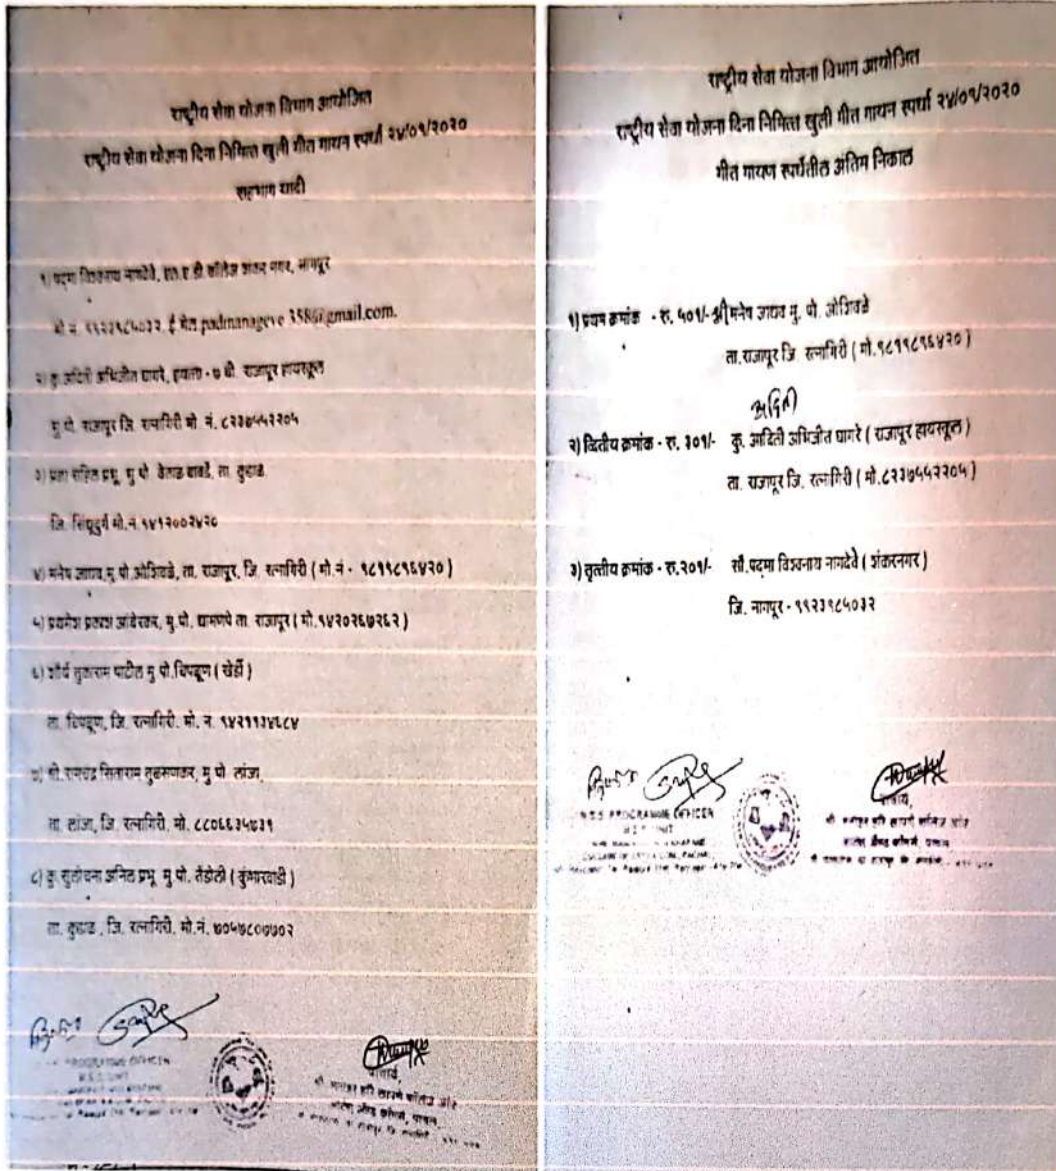 राष्ट्रीय सेवा योजना विभाग आयोजित
राष्ट्रीय सेवा योजना दिना निमित्त खुली गीत गायन स्पर्धा २४/०९/२०२०
सहभाग यादी
१) पद्मा विश्वनाथ नागदेवे, एल.ए.डी.कॉलेज शंकर नगर, नागपूर
मो.नं. ९९२३९८५०३२. ई मेल
२) कु.अदिती अभिजीत घागरे, इयत्ता - ७ वी राजापूर हायस्कूल
मु.पो. राजापूर जि. रत्नागिरी मो. नं. ८२३७५५२२०५
३) प्रभू, मु.पो. ता. कुडाळ
जि. सिंधुदुर्ग मो.नं.
४) मनेष जाधव,मु.पो.ओशिवळे, ता. राजापूर, जि. रत्नागिरी ( मो.नं - ९८१९८१६४२० )
५) प्रथमेश प्रकाश आंबेरकर, मु.पो. धामणपे ता. राजापूर ( मो.९४२०२६७२६२ )
६) शौर्य तुकाराम पाटील मु.पो.चिपळूण ( खेर्डी )
ता. चिपळूण, जि. रत्नागिरी. मो. नं. ९४२११३४६८४
७) श्री. रामचंद्र सिताराम तुळसणकर, मु.पो. लांजा,
ता. लांजा, जि. रत्नागिरी. मो. ८८०६६३५७३१
८) कु. सुलोचना अनिल प्रभू मु.पो. तेंडोली ( कुंभारवाडी )
ता. कुडाळ , जि. रत्नागिरी. मो.नं. ७०५७८०७७०२
PROGRAMME OFFICER
N.S.S. UNIT
प्राचार्य,
राष्ट्रीय सेवा योजना विभाग आयोजित
राष्ट्रीय सेवा योजना दिना निमित्त खुली गीत गायन स्पर्धा २४/०९/२०२०
गीत गायण स्पर्धेतील अंतिम निकाल
१) प्रथम क्रमांक - रु. ५०१/- श्री मनेष जाधव मु. पो. ओशिवळे
ता.राजापूर जि. रत्नागिरी ( मो.९८१९८१६४२० )
अदिती
२) व्दितीय क्रमांक - रु. ३०१/- कु. आदिती अभिजीत घागरे ( राजापूर हायस्कूल )
ता. राजापूर जि. रत्नागिरी ( मो.८२३७५५२२०५ )
३) तृत्तीय क्रमांक - रु.२०१/- सौ.पदमा विश्वनाथ नागदेवे ( शंकरनगर )
जि. नागपूर - ९९२३९८५०३२
N.S.S. PROGRAMME OFFICER
N.S.S. UNIT
प्राचार्य,